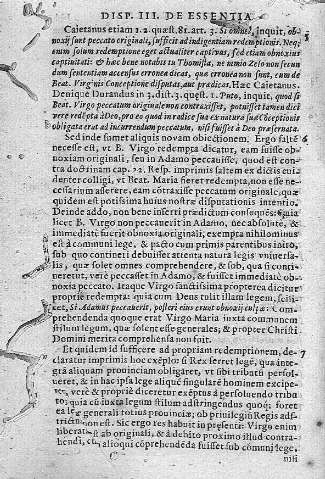 DISP. III. DE ESSENTIA
Caietanus etiam 1. 2. quæst. 81. art. 3. Si omnes, inquit, ob-
noxij sunt peccato originali, sufficit ad indigentiam redemptionis. Neq;
enim solum redemptione eget actualiter captivus, sed etiam obnoxius
captiuitati: & hæc bene notabis tu Thomista, ne nimio Zelo non secun
dum sententiam accensus erronea dicat, quæ erronea non sunt, cum de
Beat. Virginis Conceptione disputas, aut prædicas. Hæc Caietanus.
Denique Durandus in 3. dist. 3. quæst. 1. Puto, inquit, quod si
Beat. Virgo peccatum originale non contraxisset, potuisset tamen dici
vere redempta à Deo, pro eo quod in radice sua ex natura suæ Conceptionis
obligata erat ad incurrendum peccatum, nisi fuisset à Deo præseruata.
Sed inde sumet aliquis novam obiectionem. Ergo falsè 6
necesse est, vt B. Virgo redempta dicatur, eam fuisse ob-
noxiam originali, seu in Adamo peccauisse, quod est con-
tra doctrinam cap. 22. Resp. imprimis saltem ex dictis eui-
denter colligi, vt Beat. Maria fueret redempta, non esse ne-
cessarium asserere, eam cōtraxisse peccatum originale; quæ
quidem est potissima huius nostræ disputationis intentio.
Deinde addo, non bene inferri prædictum consequēs: quia
licet B. Virgo non peccauerit in Adamo, nec absolutè, &
immediatè fuerit obnoxia originali, exempta nihilominus
est à communi lege, & pacto cum primis parentibus inito,
sub quo contineri debuisset attenta natura legis vniuersa-
lis, quæ solet omnes comprehendere, & sub, qua si conti-
neretur, verè peccasset in Adamo, & fuisset immediatè ob-
noxia peccato. Itaque Virgo sanctissima propterea dicitur
propriè redempta: quia cum Deus tulit illam legem, scili-
cet, Si Adamus peccauerit, posteri eius erunt obnoxij culpæ: Com-
prehendenda quoque erat Virgo Maria iuxta communem
stilum legum, quæ solent esse generales; & propter Christi
Domini merita comprehensa non fuit.
Et quidem id sufficere ad propriam redemptionem, de- 7
claratur imprimis hoc exēplo: si Rex ferret legē, qua inte-
grā aliquam prouinciam obligaret, vt sibi tributū persol-
ueret, & in hac ipsa lege aliquē singularē hominem excipe-
ret, verè & propriè diceretur exēptus à persoluendo tribu
to; quia cū iuxta legum stilum adstringendus quoq; foret
ea lege generali totius prouinciæ; ob privilegiū Regis ads-
trictus non est. Sic ergo res habuit in præsenti: Virgo enim
liberata est ab originali, & à debito proximo illud contra-
hendi, eò, quia aliοqui cōprehendēda fuisset sub cōmuni lege,
C nisi